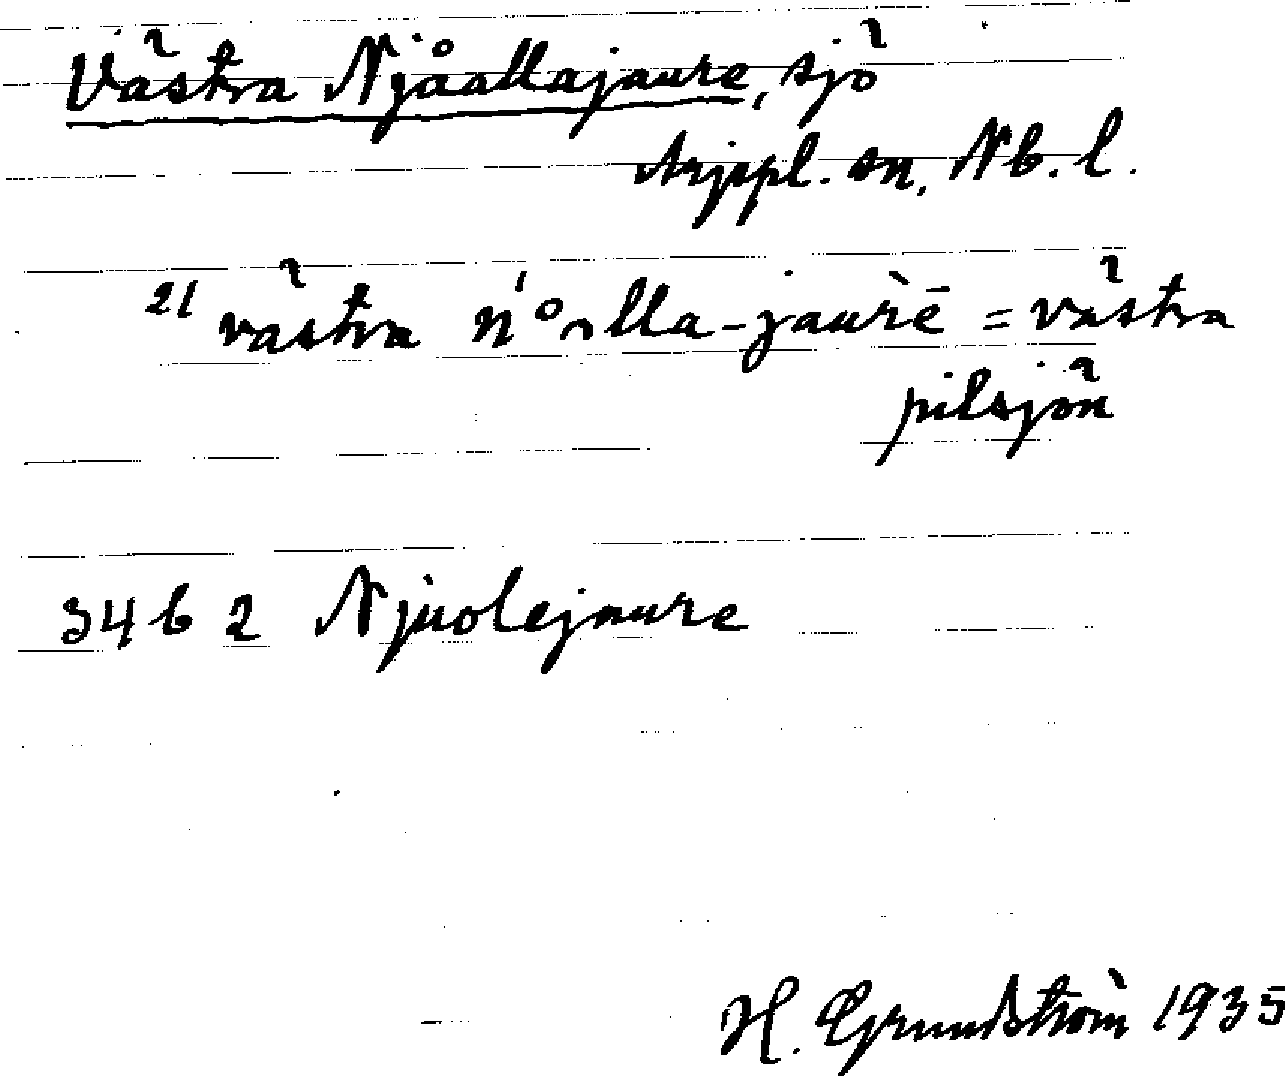 Västra Njåallajaure, sjö
Arjepl. sn, Nb. l.
21 västra = västra
pilsjön
3462 Njuolejaure
H. Grundström 1935